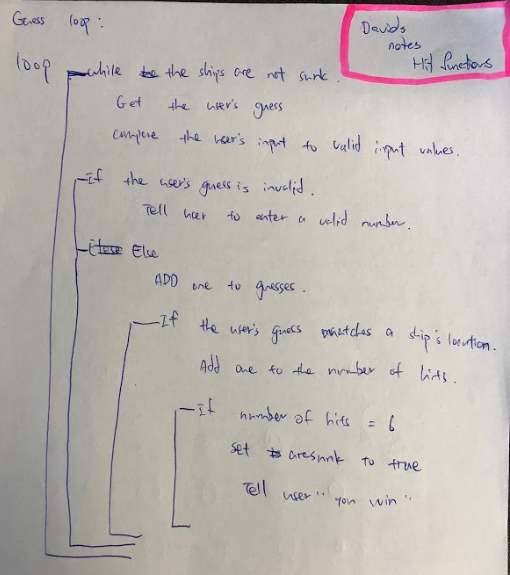 Guess loop:
Davids
notes
Hit functions
loop
while the ships are not sunk.
Get the user's guess
compare the user's input to valid input values.
If the user's guess is invalid.
Tell user to enter a valid number.
Else
ADD one to guesses.
If the user's guess matches a ship's location.
Add one to the number of hits.
If number of hits = 6
set aresunk to true
Tell user "you win"